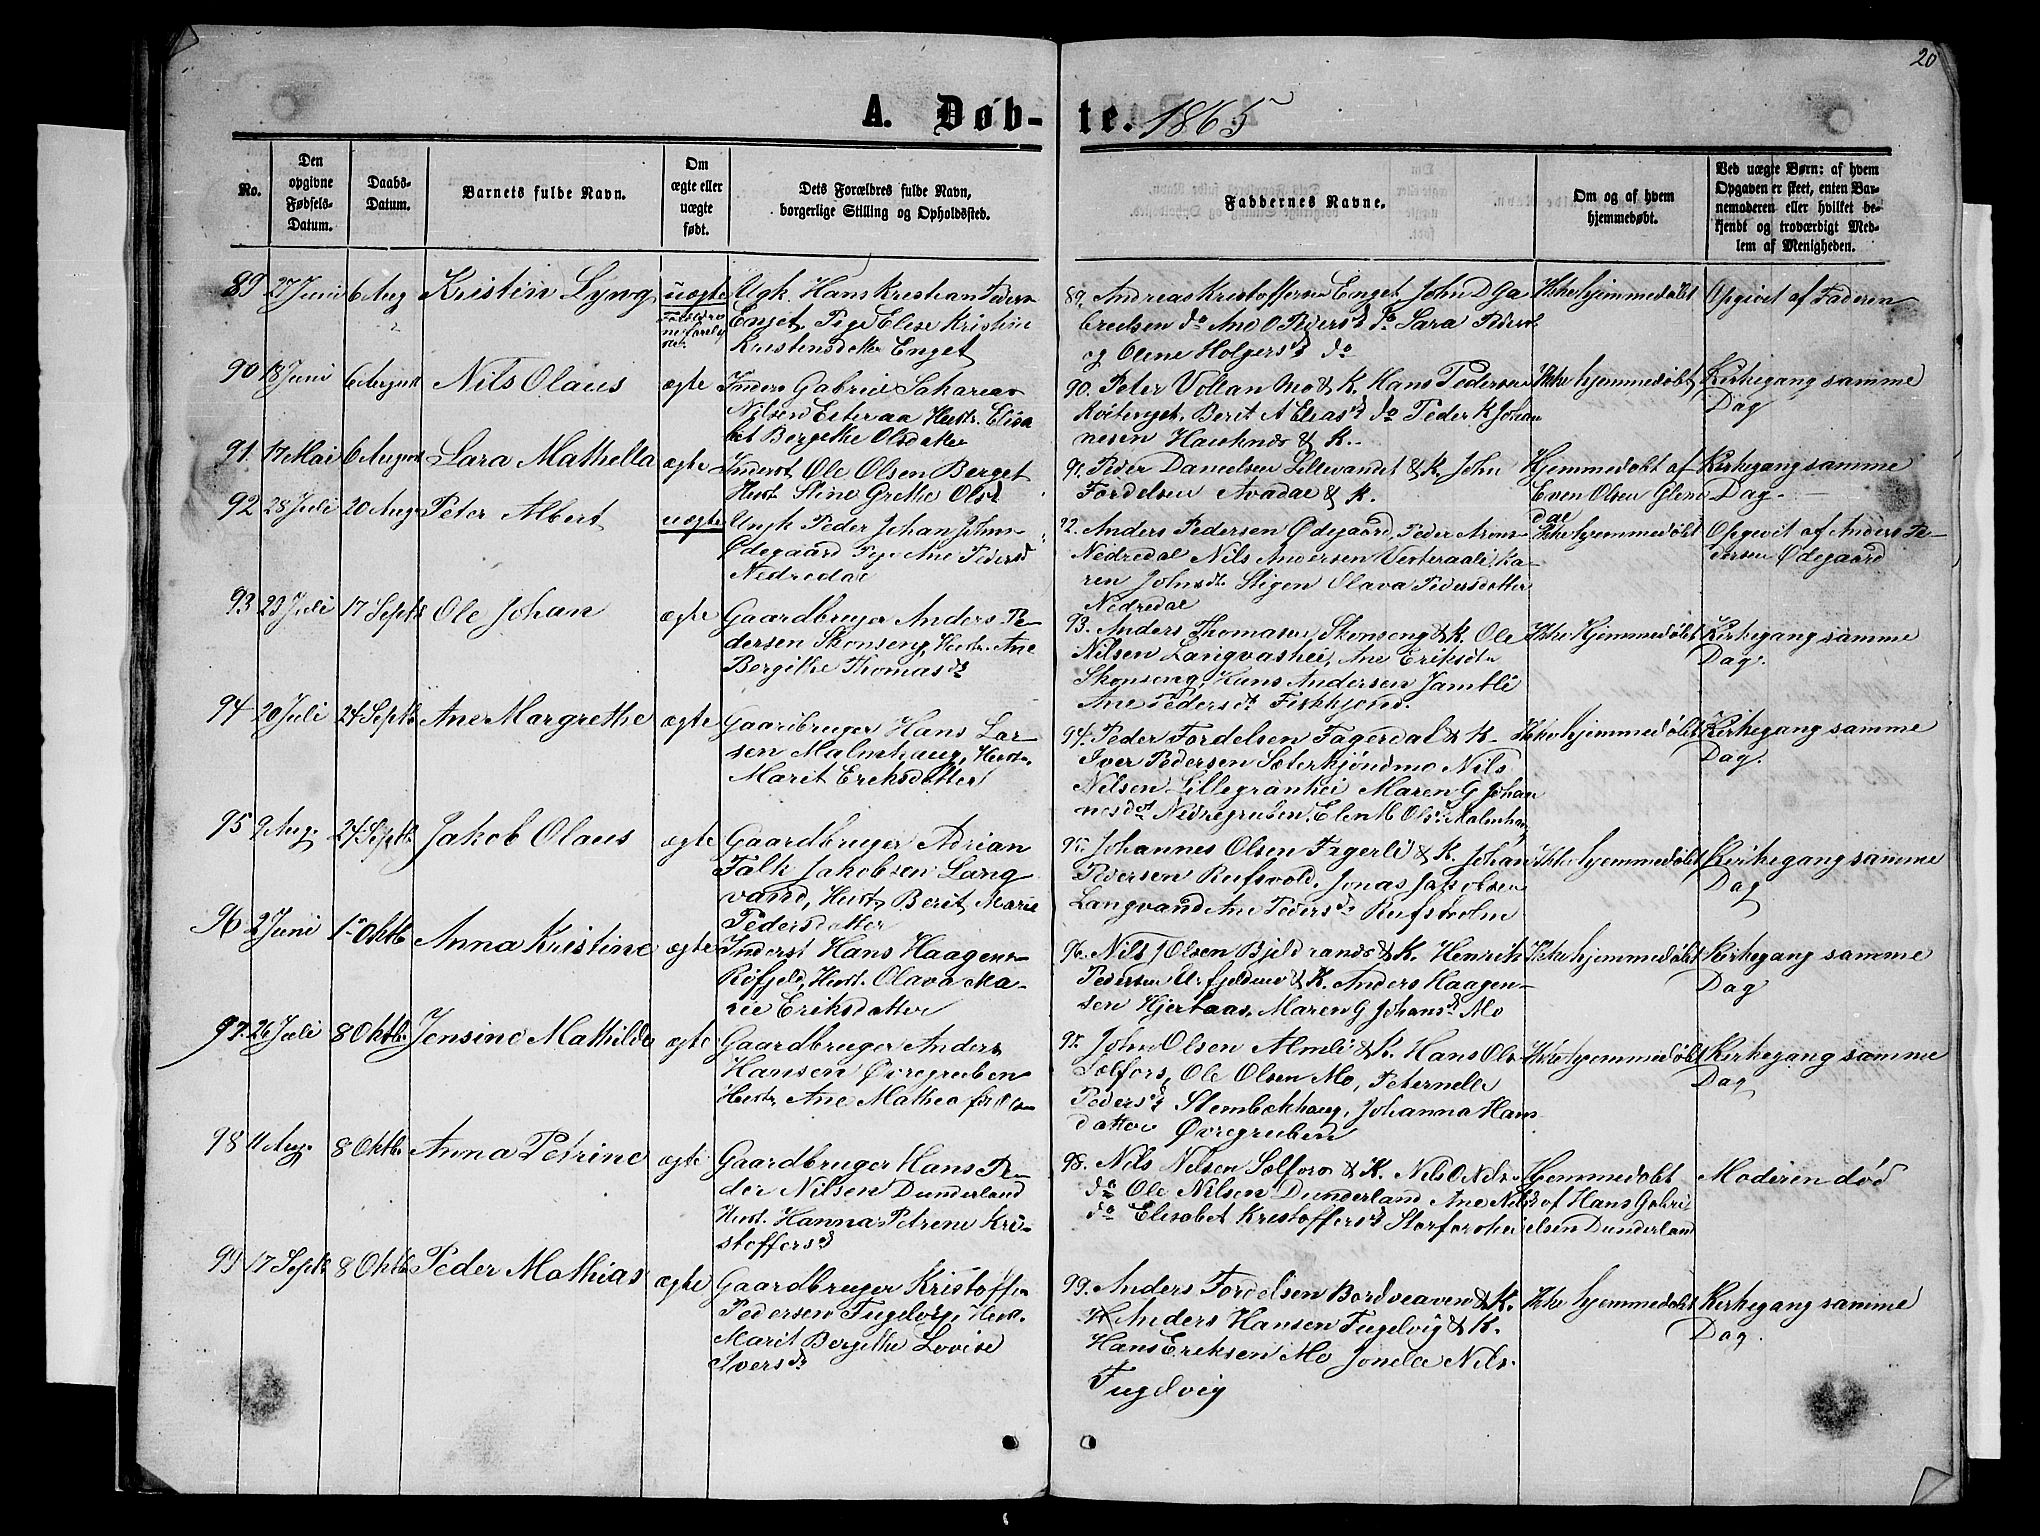 20
A. Døbte. 1865
No.
Den opgivne Fødsels-Datum.
Daabs-Datum.
Barnets fulde Navn.
Om ægte eller uægte født.
Dets Forældres fulde Navn, borgerlige Stilling og Opholdssted.
Faddernes Navne.
Om og af hvem hjemmedøbt.
Ved uægte Børn: af hvem Opgaven er skeet, enten Barnemoderen eller hvilket bekjendt og troværdigt Medlem af Menigheden.
89 27 Juni 6 Aug Kristin Lyng uægte
Ugk. Hans Kristian Peders
Enget, Pige Elise Kristine
Kristensdatter Enget
89. Andreas Kristoffersen Enget, John D Ga
brielsen do Ane O Pedersd do Sara Pedersd
og Oline Holgersd do
Ikke hjemmedøbt
Opgivet af Faderen
90 18 Juni 6 August Nils Olaus ægte
Inders Gabriel Sakarias
Nilsen Esteraa Hust. Elisa
bet Bergithe Olsdatter
90. Peter Voltan Mo & K. Hans Pedersen
Kvitenget, Berit A Eliasd do Peder K Johan
nesen Hauknes & K.
Ikke hjemmedøbt
Kirkegang samme
Dag
91. 17 Mai 6 August Sara Mathella ægte
Inderst Ole Olsen Berget
Hust. Stine Grethe Olsd
91. Peder Danielsen Lillevandet & K. John
Fordelsen Avadal & K.
Hjemmedøbt af
Even Olsen Glem
dal
Kirkegang samme
Dag.
92 28 Juli 20 Aug Peter Albert uægte
Ungk Peder Johan Johns
Ødegaard Pige Ane Pedersd
Nedredal
92. Anders Pedersen Ødegaard, Peder Arons
Nedredal Nils Andersen Vesteraali, Ka
ren Johnsdt. Stigen Olava Pedersdatter
Nedredal
Ikke hjemmedøbt
Opgivet af Anders Pe-
dersen Ødegaard
93 23 Juli 17 Septb Ole Johan ægte
Gaardbruger Anders Pe-
dersen Skonseng, Hust. Ane
Bergithe Thomasd
93. Anders Thomasen Skonseng & K. Ole
Nilsen Langvashei, Ane Eriksdtr
Skonseng, Hans Andersen Jamtli
Ane Pedersdt
Ikke hjemmedøbt
Kirkegang samme
Dag.
94 20 Juli 24 Septb Ane Margrethe ægte
Gaardbruger Hans Lar-
sen Malmhaug, Hust.
Marit Eriksdatter
94. Peder Fordelsen Fagerdal & K
Iver Pedersen Sæterkjøndmo Nils
Nilsen Lillegranhei Maren G Johan
nesdt Nedregruben, Elen M Olsd Malmhaug
Ikke hjemmedøbt
Kirkegang samme
Dag.
95 9 Aug. 24 Septb. Jakob Olaus ægte
Gaardbruger Adrian
Falk Jakobsen Lang
vand, Hust. Berit Marie
Pedersdatter
95. Johannes Olsen Fagerli & K. Johan
Pedersen Rufsvold, Jonas Jakobsen
Langvand Ane Pedersd Rufsholm
Ikke hjemmedøbt
Kirkegang samme
Dag
96 2 Juni 1 Oktb Anna Kristine ægte
Inderst Hans Haagen
Røfjeld, Hust. Olava Ma-
rie Eriksdatter
96. Nils J Olsen Bjeldrands & K. Henrik
Pedersen Urfjeldmo & K. Anders Haagen-
sen Hjertaas, Maren G Johansd Mo
Ikke hjemmedøbt
Kirkegang samme
Dag
97. 26 Juli 8 Oktb. Jensine Mathilde ægte
Gaardbruger Anders
Hansen Øvregruben
Hust. Ane Mathea
97. John Olsen Almli & K. Hans Ols
Sølfors, Ole Olsen Mo, Peternelle
Pedersd Stenbækhaug, Johanna Hans
datter Øvregruben
Ikke hjemmedøbt
Kirkegang samme
Dag
98 11 Aug. 8 Oktb. Anna Petrine ægte
Gaardbruger Hans Pe-
der Nilsen Dunderland
Hust. Hanna Petrine Kri-
stoffersd
98. Nils Nilsen Sølfors & K. Nils O Nils
do Ole Nilsen Dunderland Ane Nilsd
do Elisabet Kristoffersd Storforshei
Hjemmedøbt
af Hans Gabri
elsen Dunderland
Moderen død
99 17 Septb 8 Oktb Peder Mathias ægte
Gaardbruger Kristoffer
Pedersen Fugelvig, Hust.
Marit Bergithe Lovise
Iversd
99. Anders Fordelsen Bordveaven & K.
Anders Hansen Fugelvig & K.
Hans Eriksen Mo Jonella Nils.
Fugelvig
Ikke hjemmedøbt
Kirkegang samme
Dag.